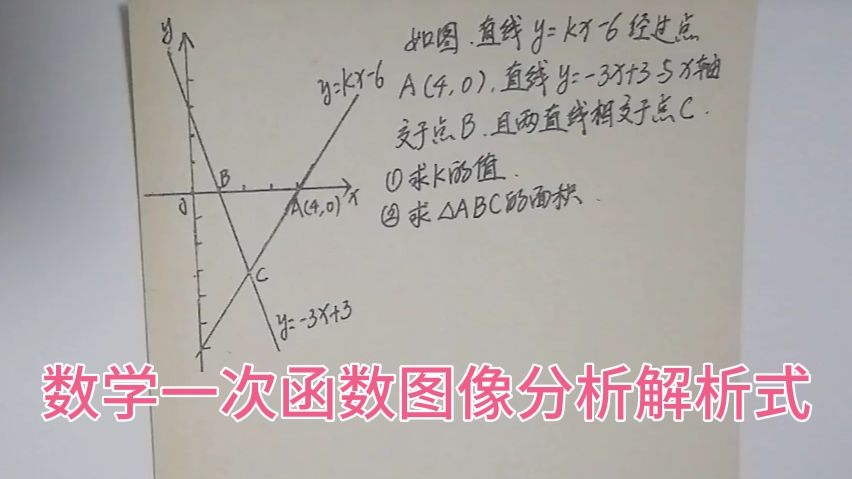 如图.直线y=kx-6经过点
A(4,0),直线y=-3x+3与x轴
交于点B.且两直线相交于点C.
①求k的值.
②求△ABC的面积.
y
y=kx-6
B
O
A(4,0)
x
C
y=-3x+3
数学一次函数图像分析解析式